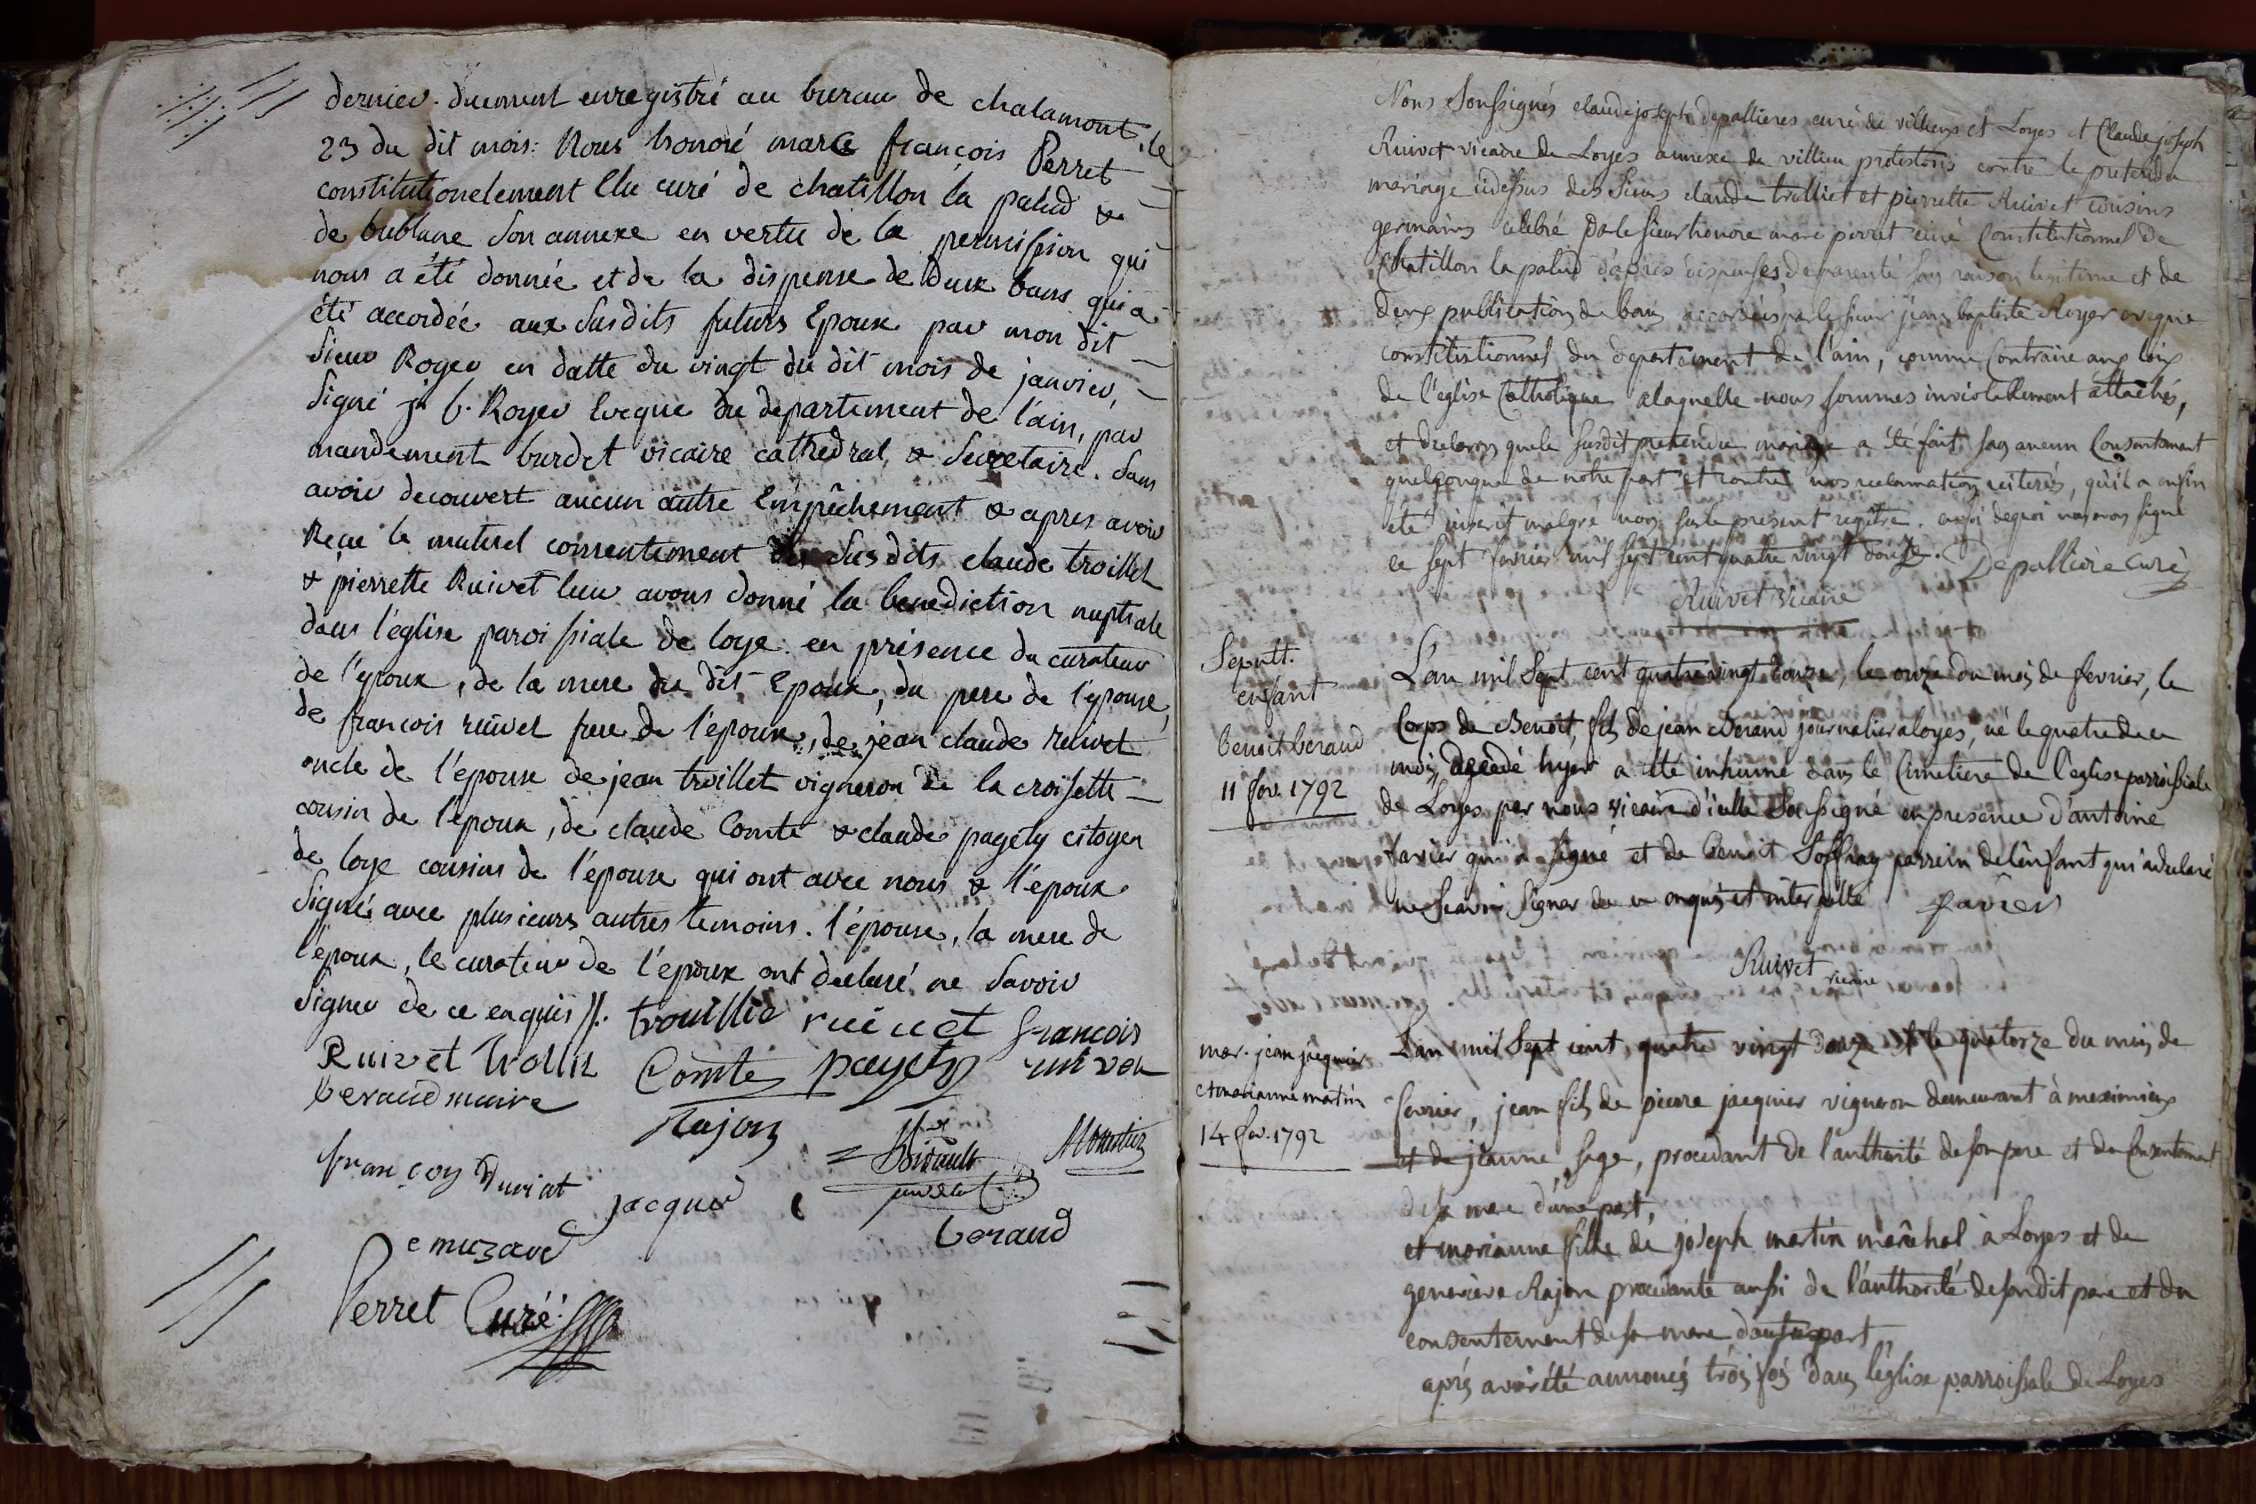 dernier. duement enregistré au bureau de chalamont, le
23 du dit mois: Nous honoré marc françois Perret
constitutionelement Elu curé de chatillon la palud &
de bublane son annexe en vertu de la permission qui
nous a été donnée et de la dispense de deux bans qui a
été accordée aux susdits futurs Epoux par mon dit
Sieur Royer en datte du vingt du dit mois de janvier,
Signé jn b. Royer Eveque du departement de l'ain, par
mandement burdet vicaire cathedral, & Secretaire. Sans
avoir decouvert aucun autre Empêchement & apres avoir
Reçu le mutuel consentement des Susdits claude troillet
& pierrette Ruivet leur avons donné la benediction nuptiale
dans l'église paroissiale de loye en présence du curateur
de l'epoux, de la mere du dit Epoux, du pere de l'epouse,
de francois reuvet frere de l'epouse, de jean claude ruivet
oncle de l'epouse de jean troillet vigneron de la croisette
cousin de l'epoux, de claude Comte & claude pagety citoyen
de loye cousins de l'épouse qui ont avec nous & l'epoux
Signé avec plusieurs autres temoins. l'épouse, la mere de
l'epoux, le curateur de l'époux ont declaré ne Savoir
Signer de ce enquis //. trouillie ruiuet francois
Ruivet trollit Comte pagety
beraud maire
Rajon
françois Duriat jacque
beraud
Perret Curé
Nons Soussignés claude joseph depallieres curé de villieux et Loyes et Claude joseph
Ruivet vicaire de Loyes annexe de villieu protestons contre le pretendu
mariage cidessus des Sieurs claude trolliet et pierrette Ruivet cousins
germains célébré par le sieur honore marc perret curé Constitutionnel de
Chatillon la palud d'après dispenses de parenté sans raison legitime et de
deux publications de bans accordées par le sieur jean baptiste Royer eveque
constitutionnel du departement de l'ain, comme Contraire aux loix
de l'église Catholique alaquelle nous sommes inviolablement attachés,
et declarons que le susdit pretendu mariage a été fait sans aucun Consentement
quelconque de notre part et contre nos reclamations reiterés, qu'il a enfin
été inscrit malgré nous sur le present registre. en foi de quoi nous avons signé
ce sept fevrier mil sept cent quatre vingt douze. Depalliere curé
Ruivet vicaire
Sepult.
enfant
benoit beraud
11 fev. 1792
L'an mil Sept cent quatre vingt douze, le onze du mois de fevrier, le
Corps de Benoit, fils de jean Beraud journalier a loyes, né le quatre de ce
mois, decedé hyer a eté inhumé dans le Cimetiere de l'eglise parroissiale
de Loyes par nous vicaire d'icelle Soussigné en presence d'antoine
favier qui a signé et de Benoit Soffray parrein de l'enfant qui a declaré
ne scavoir Signer de ce enquis et interpellé favier
Ruivet vicaire
mar. jean jacquier
et marianne martin
14 fev. 1792
L'an mil Sept cent, quatre vingt douze et le quatorze du mois de
fevrier, jean fils de pierre jacquier vigneron demeurant à meximieux
et de jeanne Sage, procedant de l'authorité de son pere et du Consentement
de sa mere d'une part,
et marianne fille de joseph martin maréchal à Loyes et de
genevieve Rajon procedante aussi de l'authorité de son dit pere et du
consentement de sa mere d'autre part,
après avoir été annoncés trois fois dans l'église parroissiale de Loyes